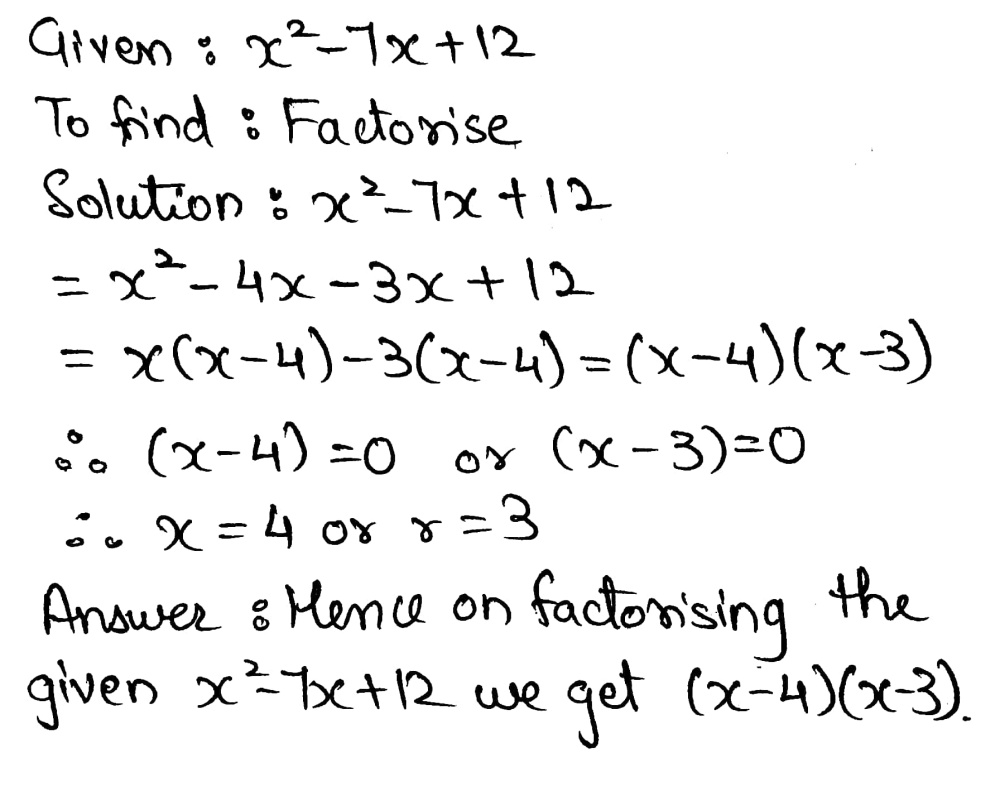 Given : x²-7x+12
To find : Factorise
Solution : x²-7x+12
= x²-4x-3x+12
= x(x-4)-3(x-4)=(x-4)(x-3)
∴ (x-4)=0 or (x-3)=0
∴ x=4 or r=3
Answer : Hence on factorising the
given x²-7x+12 we get (x-4)(x-3).